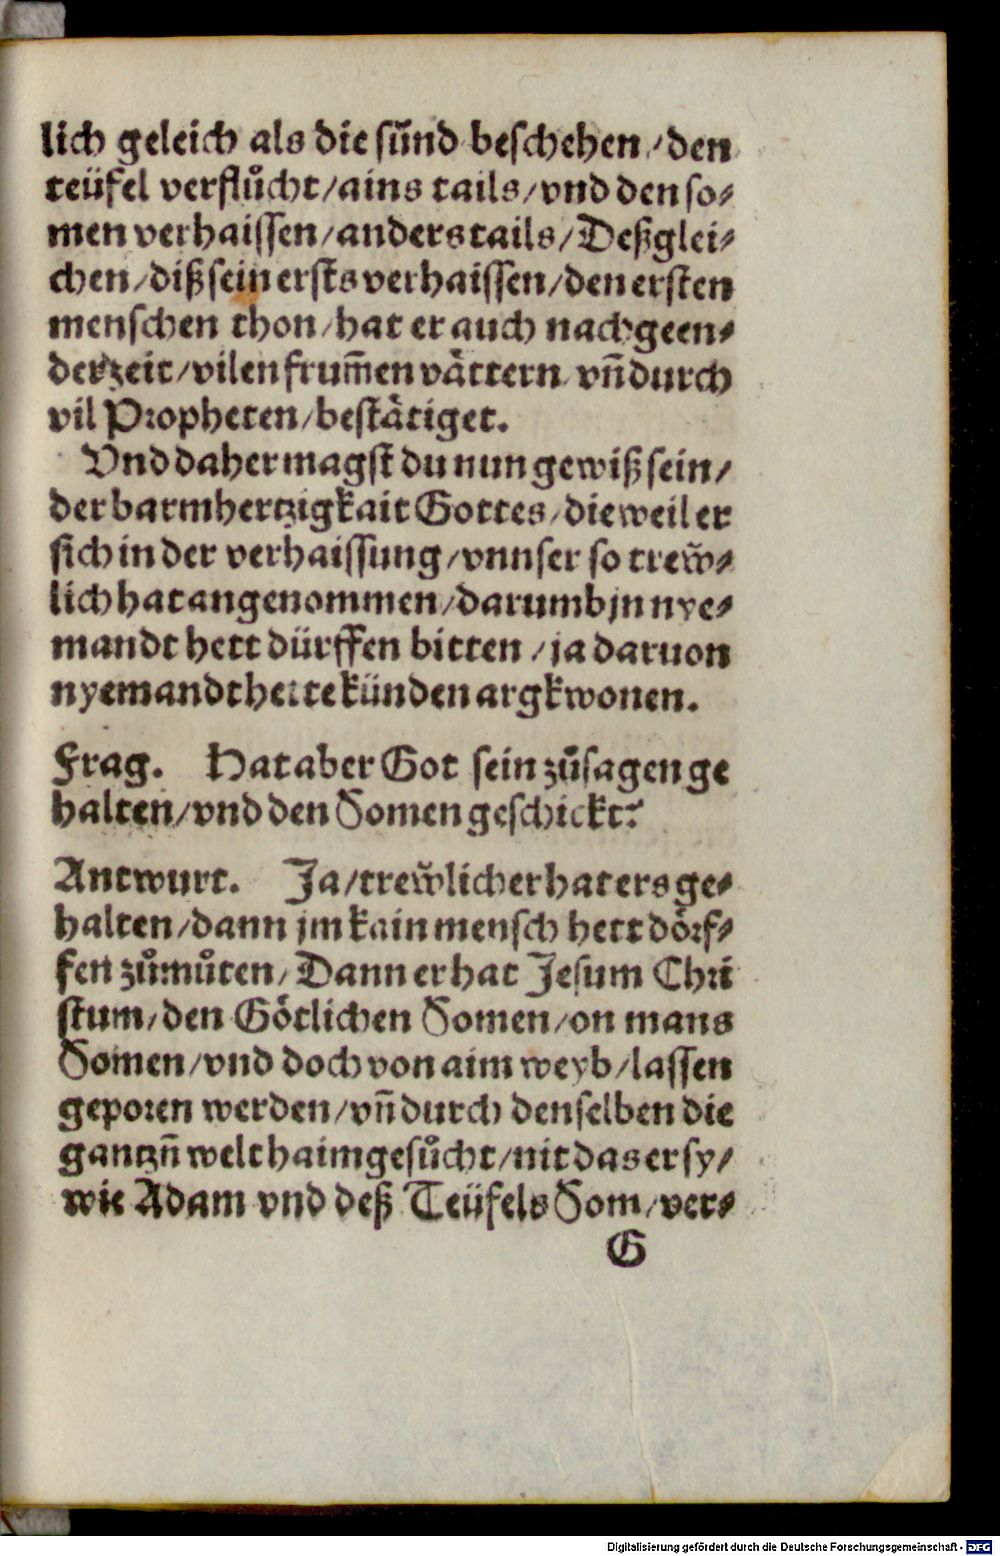 lich geleich als die sünd beschehen / den
teüfel verflůcht / ains tails / vnd den so⸗
men verhaissen / anders tails / Deßglei⸗
chen / diß sein ersts verhaissen / den ersten
menschen thon / hat er auch nachgeen⸗
der zeit / vilen frum̄en våttern vn̄ durch
vil Propheten / beståtiget.
Vnd daher magst du nun gewiß sein /
der barmhertzigkait Gottes / die weil er
sich in der verhaissung / vnnser so trew̆⸗
lich hat angenommen / darumb jn nye⸗
mandt hett dürffen bitten / ja daruon
nyemandt hette künden argkwonen.
Frag. Hat aber Got sein zůsagen ge
halten / vnd den Somen geschickt?
Antwurt. Ja / trew̆licher hat ers ge⸗
halten / dann jm kain mensch hett dörf⸗
fen zůmůten / Dann er hat Jesum Chri
stum / den Götlichen Somen / on mans
Somen / vnd doch von aim weyb / lassen
geporen werden / vn̄ durch denselben die
gantzn̄ welt haimgesůcht / nit das er sy /
wie Adam vnd deß Teüfels Som / ver⸗
G
Digitalisierung gefördert durch die Deutsche Forschungsgemeinschaft - DFG